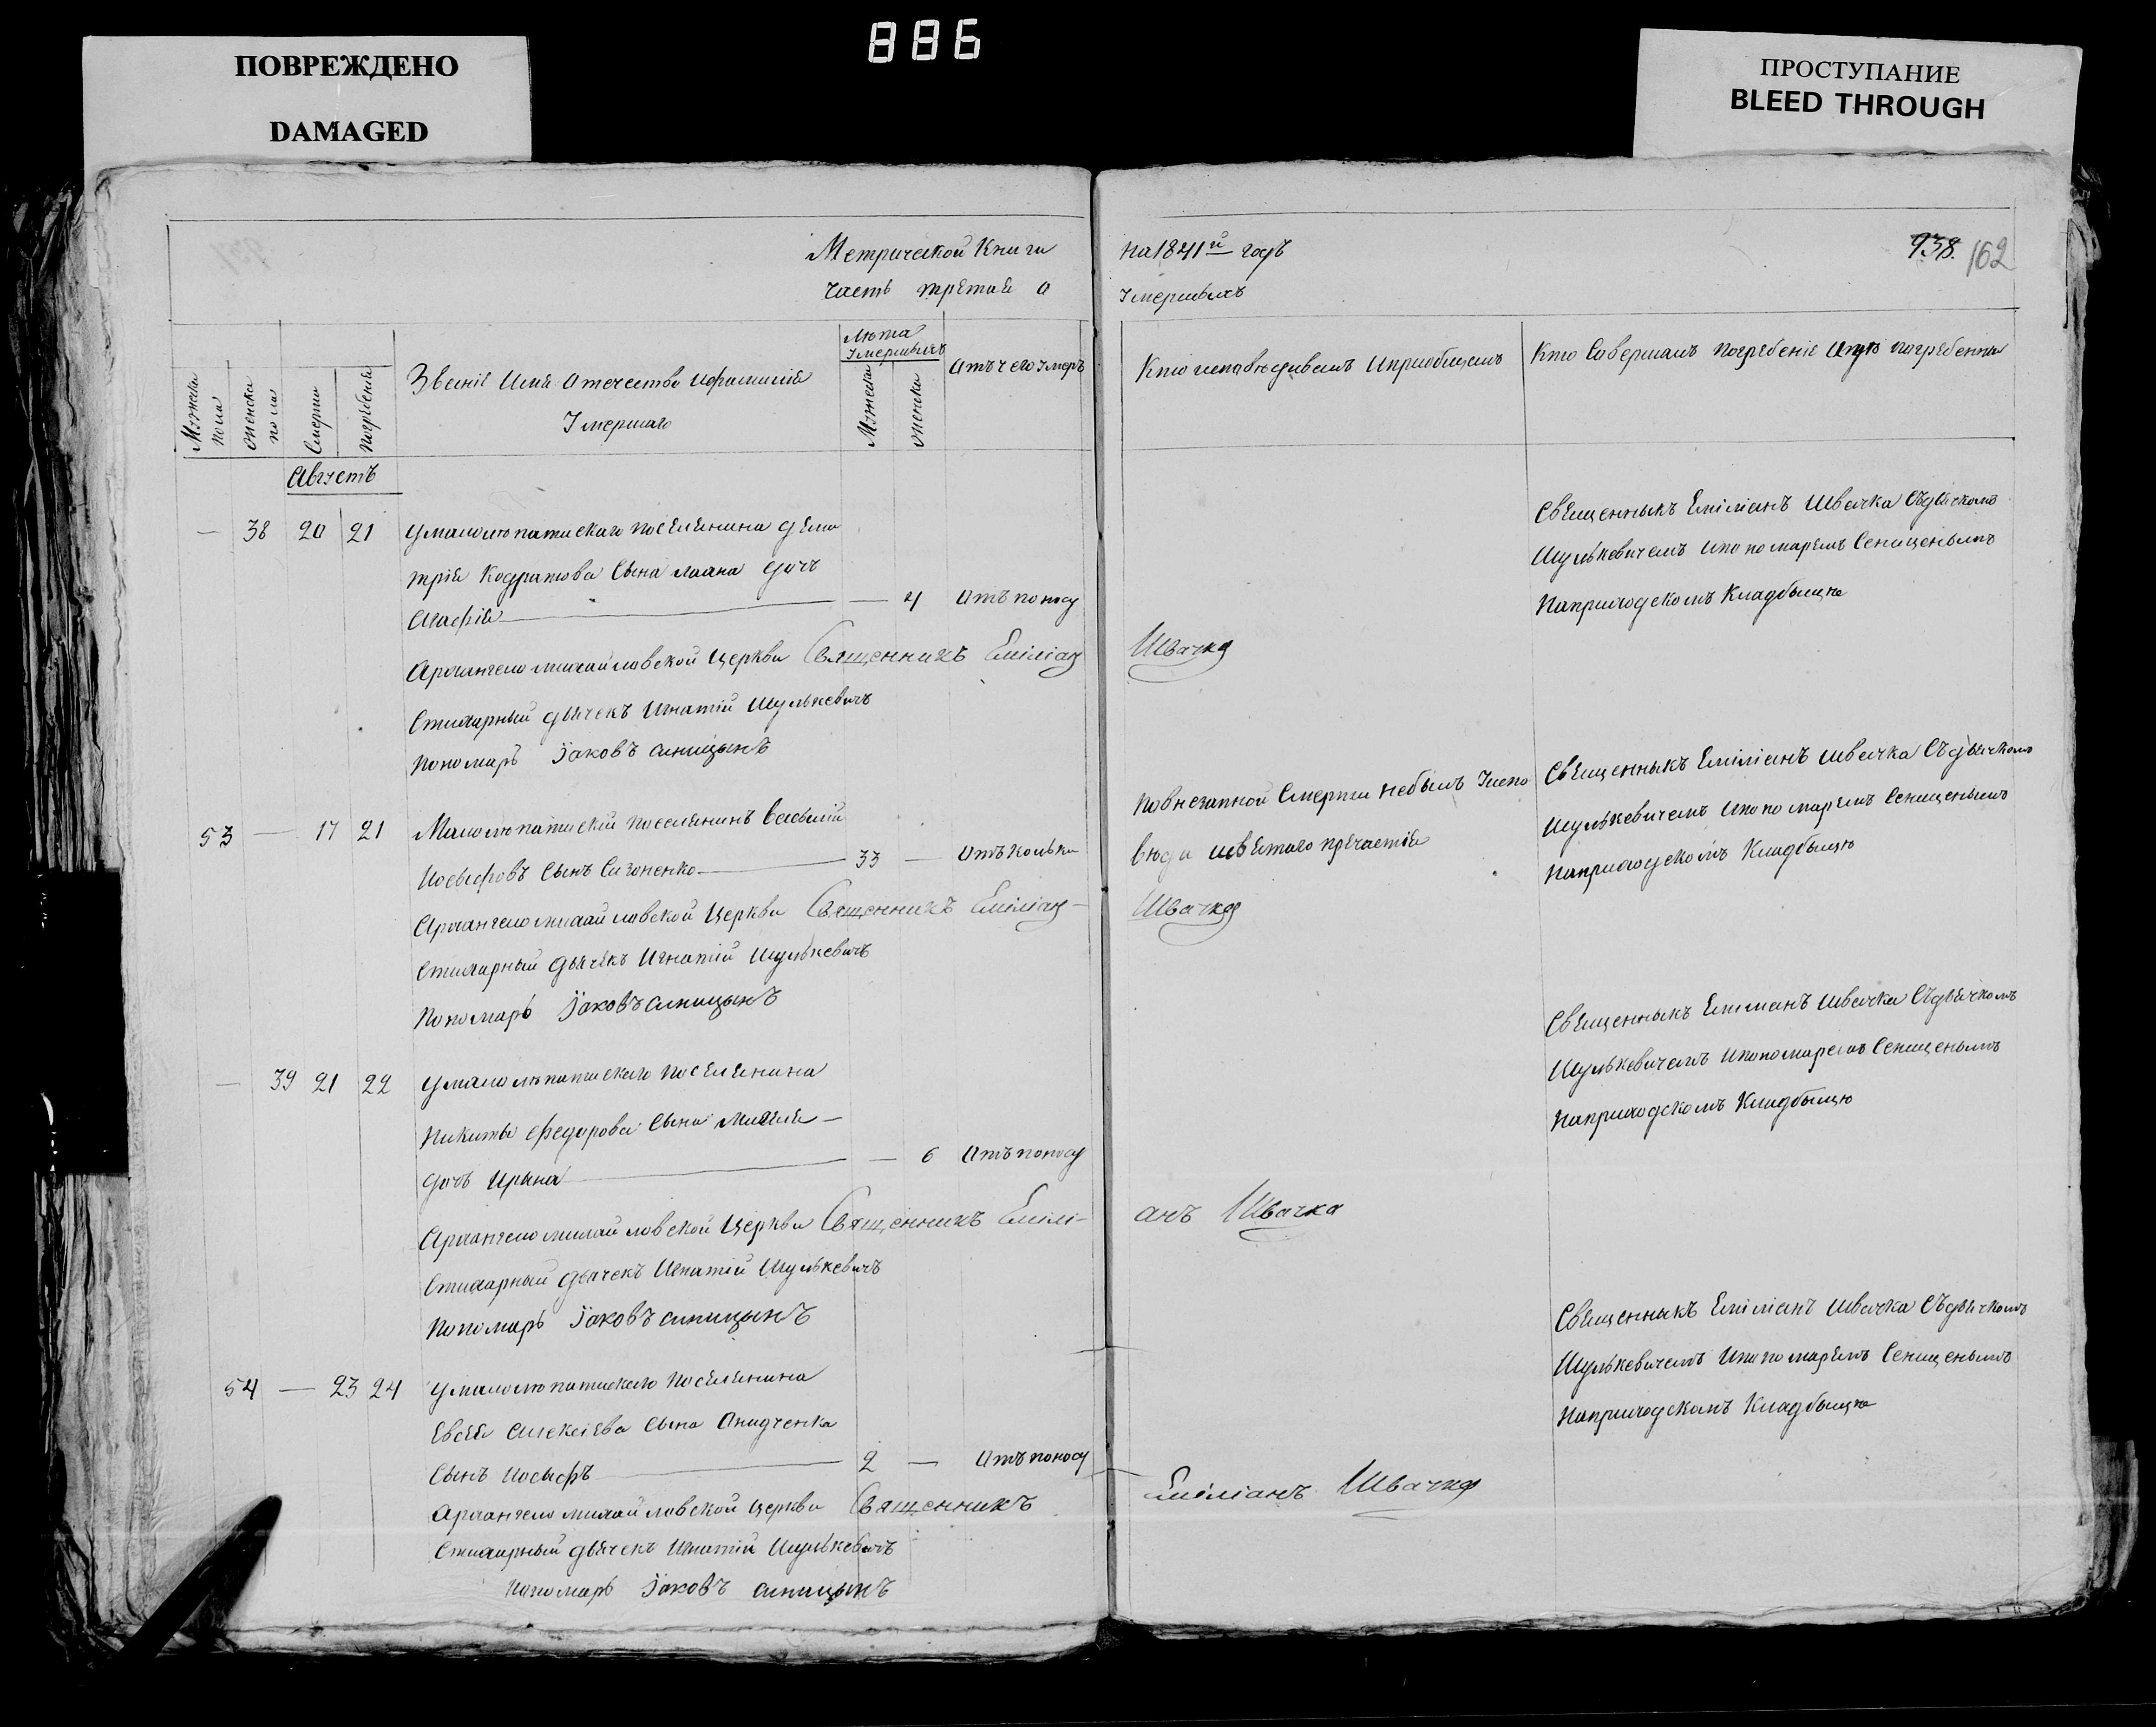 886
ПОВРЕЖДЕНО
DAMAGED
ПРОСТУПАНИЕ
BLEED THROUGH
Метрической Книги
на 1841й годъ
938. 162
часть третая о
умершихъ
Мужеска пола
женска пола
Смерти
погребения
Звание Имя Отечество ифамилия
Умершаго
Лета
умершихъ
Мужеска
женска
отъ чего умеръ
Кто исповедивалъ иприобщалъ
Кто Совершалъ погребение игде погребенны
Августъ
— 38 20 21
умалолепатискаго поселенина Дми
трия Кодратова Сына дочь
Агафия — 4 отъ поносу
Священныкъ Емилианъ Швачка Съдячкомъ
Шулькевичемъ ипономаремъ Сениценымъ
Наприходскомъ Кладбыще
Архангело михайловской Церкви Священникъ Емілиан
Швачка
Стихарный дьячекъ Игнатій Шулькевичъ
Пономарь Іаковъ Синицынъ
53 — 17 21
Малолепатиский поселенинъ Василий
Иосыфовъ Сынъ Сагоненко — 33 — отъ Кольки
По внезапной Смерти небылъ Уиспо
веди исвятаго прычастия
Священныкъ Емилианъ Швачка Съдячкомъ
Шулькевичемъ ипономаремъ Сеницынымъ
Наприходскомъ Кладбыщю
Архангело михайловской Церкви Священникъ Емілиан
Швачка
Стихарный дьячекъ Игнатій Шулькевичъ
Пономарь Іаковъ Синицынъ
— 39 21 22
умалолепатискаго поселенина
Никиты Федорова Сына
дочь Ирина — 6 отъ поносу
Священныкъ Емилианъ Швачка Съдячкомъ
Шулькевичемъ ипономаремъ Сеницынымъ
Наприходскомъ Кладбыщю
Архангело михайловской Церкви Священникъ Емілі-
анъ Швачка
Стихарный дьячекъ Игнатій Шулькевичъ
Пономарь Іаковъ Синицынъ
54 — 23 24
умалолепатискаго поселенина
Евсея Алексиева Сына Онидченка
Сынъ Иосыфъ — 2 — отъ поносу
Священныкъ Емилианъ Швачка Съдячкомъ
Шулькевичемъ ипономаремъ Сеницынымъ
Наприходскомъ Кладбыще
Архангело михайловской Церкви Священникъ
Емілианъ Швачка
Стихарный дьячекъ Игнатій Шулькевичъ
Пономарь Іаковъ Синицынъ